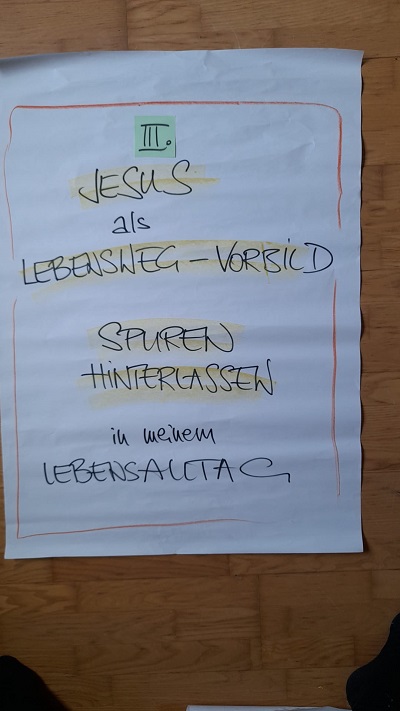 III.
JESUS
als
LEBENSWEG - VORBILD
SPUREN
HINTERLASSEN
in meinem
LEBENSALLTAG